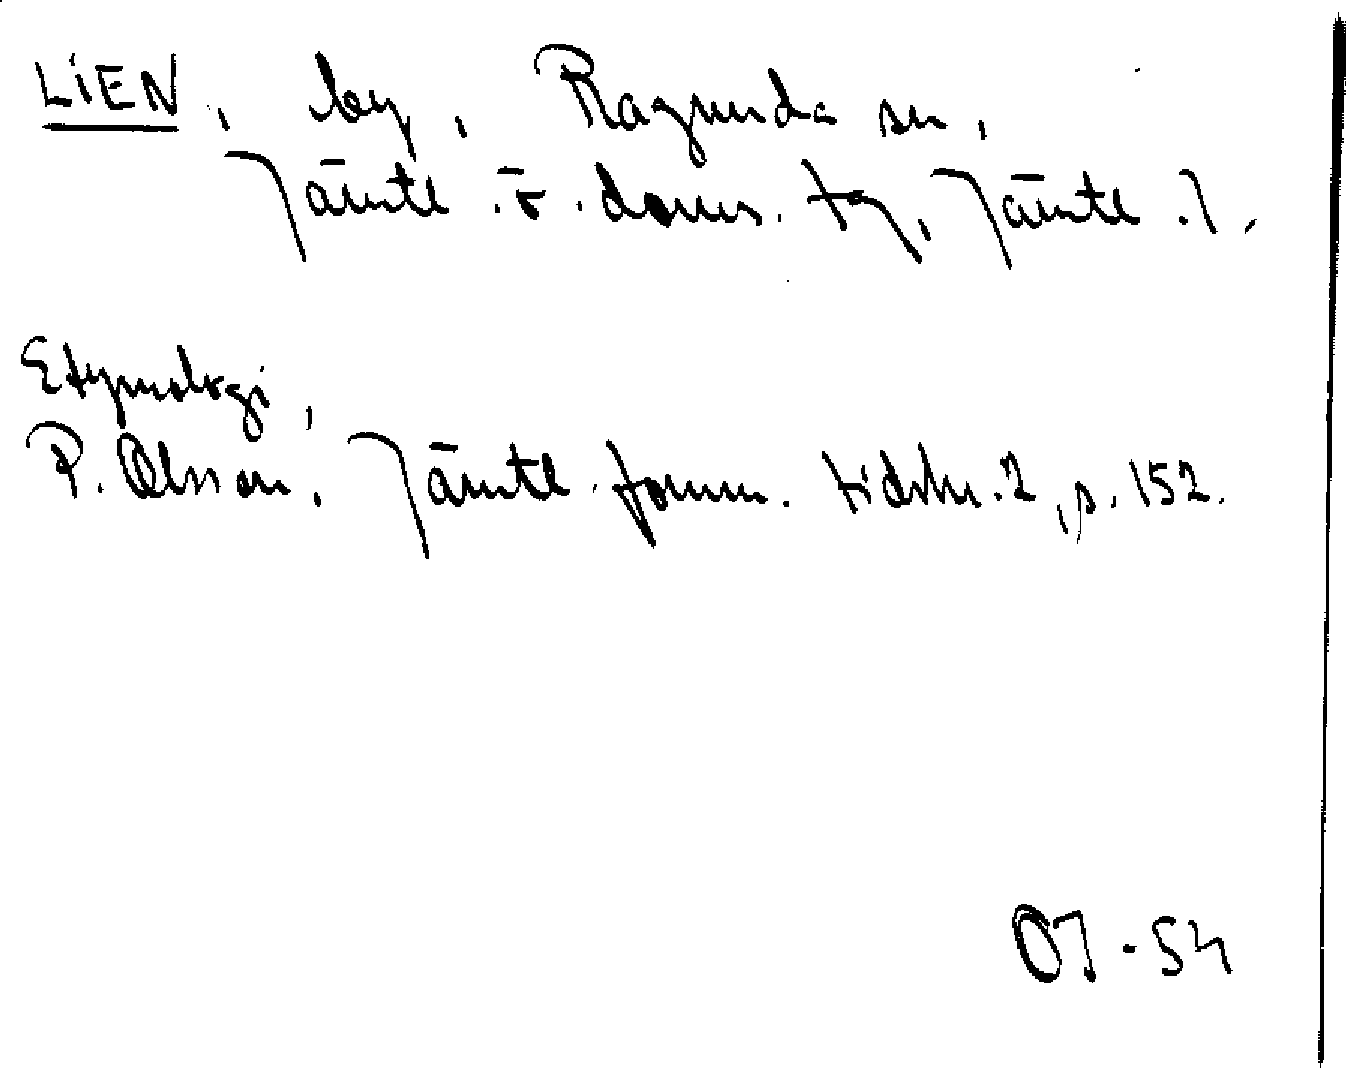 LIEN, by, Ragunda sn,
Jämtl. ö. doms. tg, Jämtl. l.
Etymologi,
P. Olsson, Jämtl. fornm. tidskr. 2, s. 152.
OJ-54